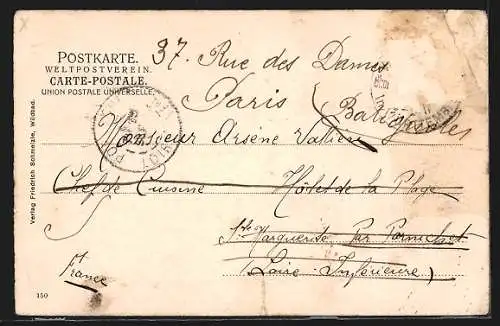 POSTKARTE.
WELTPOSTVEREIN.
CARTE-POSTALE.
UNION POSTALE UNIVERSELLE.
37. Rue des Dames
Paris (Batignolles)
Monsieur Arsène Vallière
Chef de Cuisine Hôtel de la Plage
Ste Marguerite Par Pornichet
(Loire Inférieure)
France
Verlag Friedrich Schmelzle, Wildbad.
150